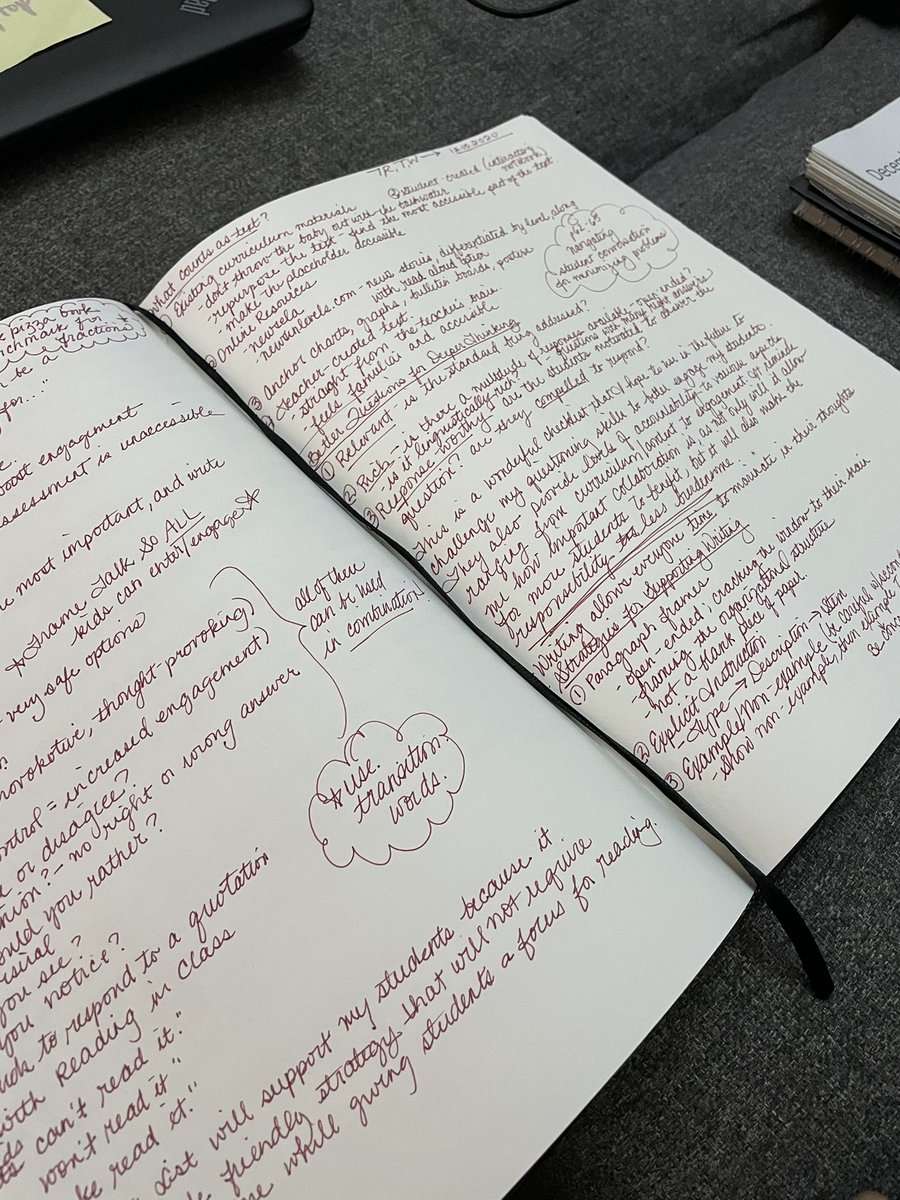 Pad
Decem
pizza book
benchmark for
be a fractions
for..."
boost engagement
assessment is unaccessible
most important, and write
☆Frame Talk So ALL
kids can enter/engage☆
very safe options
provokative, thought-provoking)
control = increased engagement)
or disagree?
no right or wrong answer
would you rather?
visual
you see?
you notice?
to respond to a quotation
with Reading in class
can't read it."
won't read it"
read it."
all of them
can be used
in combination!
☆use
transition
words.
List will support my students because it
friendly strategy that will not require
while giving students a focus for reading.
TR, TW → 12.10.2020
What counts as text?
④ student-created (interactive
notebook)
① Existing curriculum materials
don't throw the baby out with the bathwater
repurpose the text - find the most accessible part of the text.
make the placeholder accessible
② Online Resources
- newsela
newsinlevels.com - news stories differentiated by level along
with read aloud option
③ Anchor charts, graphs, bulletin boards, posters
teacher-created text
straight from the teacher's brain.
feels familiar and accessible
62-65
navigating
student conversation
for maximizing problems
Questions for Deeper Thinking
① Relevant - is the standard being addressed?
② Rich - is there a multitude of responses available - open ended?
is it linguistically-rich? questions w/ many right answers
③ Response Worthy - are the students motivated to answer the
question? are they compelled to respond?
This is a wonderful checklist that I hope to use in the future to
challenge my questioning skills to better engage my students.
They also provide levels of accountability to various aspects
ranging from curriculum content to engagement. It reminds
me how important collaboration is as not only will it allow
for more students to benefit, but it will also make the
responsibility less burdensome.
Writing allows everyone time to marinate in their thoughts
Strategies for Supporting Writing
① Paragraph frames
- open-ended; cracking the window to their brain
- framing the organizational structure
- not a blank piece of paper.
② Explicit Instruction
- Type → Description → Stem
③ Example/Non-example (be careful
- show non-example, then example